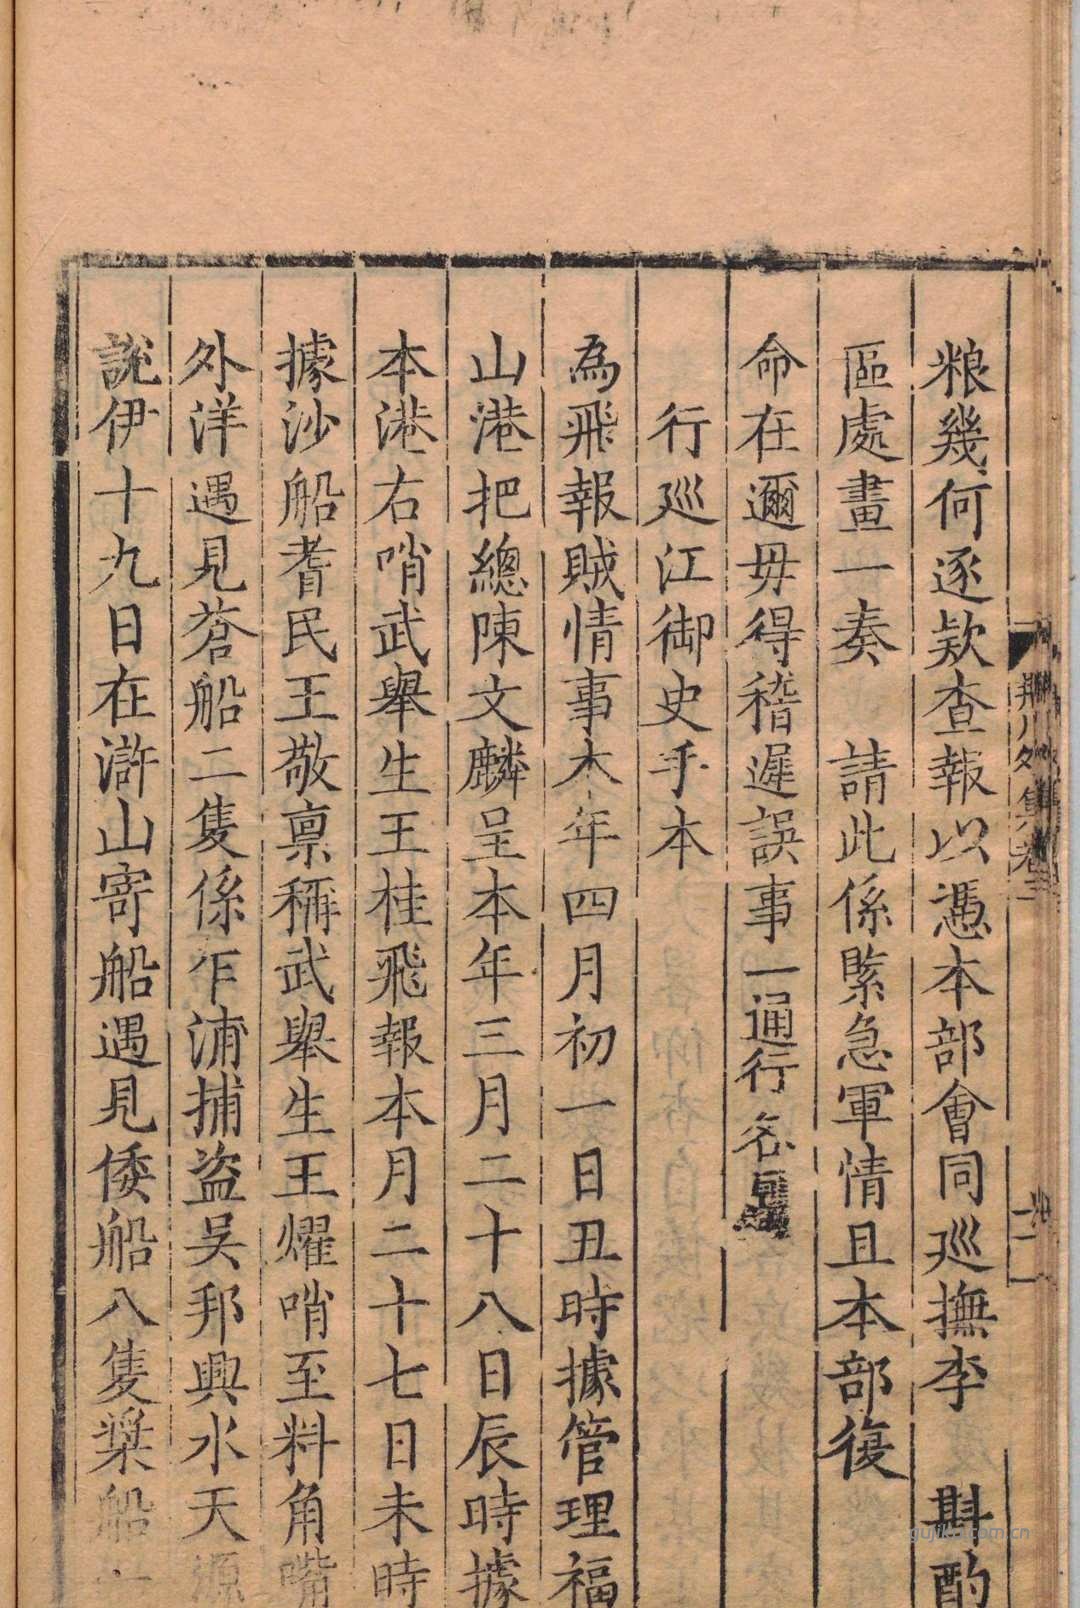 粮幾何逐欵查報以憑本部會同巡撫李　斟酌
區處畫一奏　請此係緊急軍情且本部復
命在邇毋得稽遲誤事一通行各
行巡江御史手本
為飛報賊情事本年四月初一日丑時據管理福
山港把總陳文麟呈本年三月二十八日辰時據
本港右哨武舉生王桂飛報本月二十七日未時
據沙船耆民王敬禀稱武舉生王燿哨至料角嘴
外洋遇見蒼船二隻係乍浦捕盜吴邦興水天源
說伊十九日在滸山寄船遇見倭船八隻槳船
荆川外集卷三
gujiku.com.cn